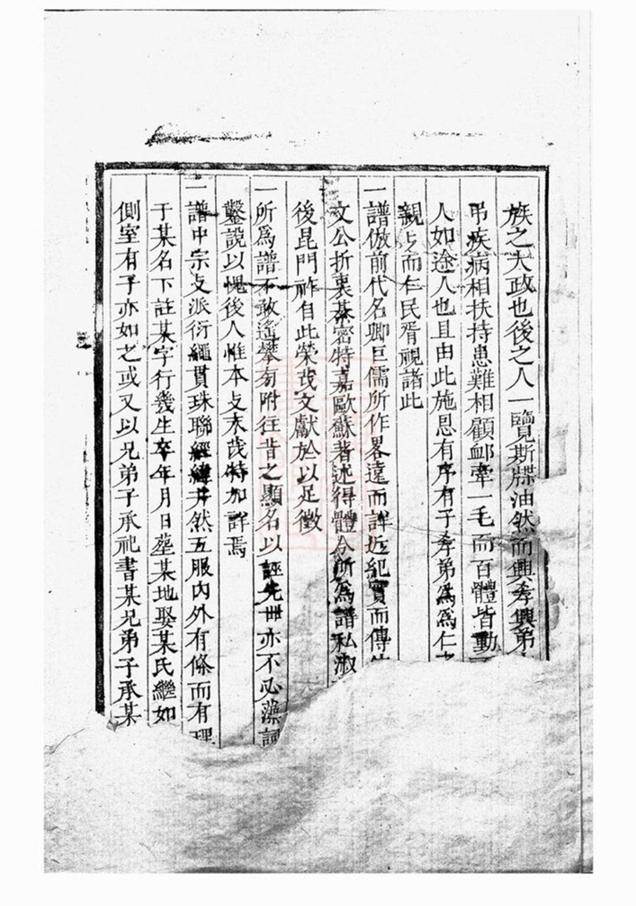 族之大政也後之人一覽斯牒油然而興孝興弟
弔疾病相扶持患難相顧卹牽一毛而百體皆動
人如途人也且由此施恩有序有子孝弟為為仁之
親〻而仁民胥視諸此
一譜倣前代名卿巨儒所作畧遠而詳近紀實而傳
文公折衷綦密特嘉歐蘇著述得體今所為譜私淑
後昆門祚自此榮哉文獻於以足徵
一所為譜不敢遙攀旁附往昔之顯名以誣先世亦不必藻詞
鑿說以愧後人惟本支末裁特加詳焉
一譜中宗支派衍繩貫珠聯經緯井然五服內外有條而有理
于某名下註某字行幾生卒年月日塟某地娶某氏繼如
側室有子亦如之或又以兄弟子承祀書某兄弟子承某